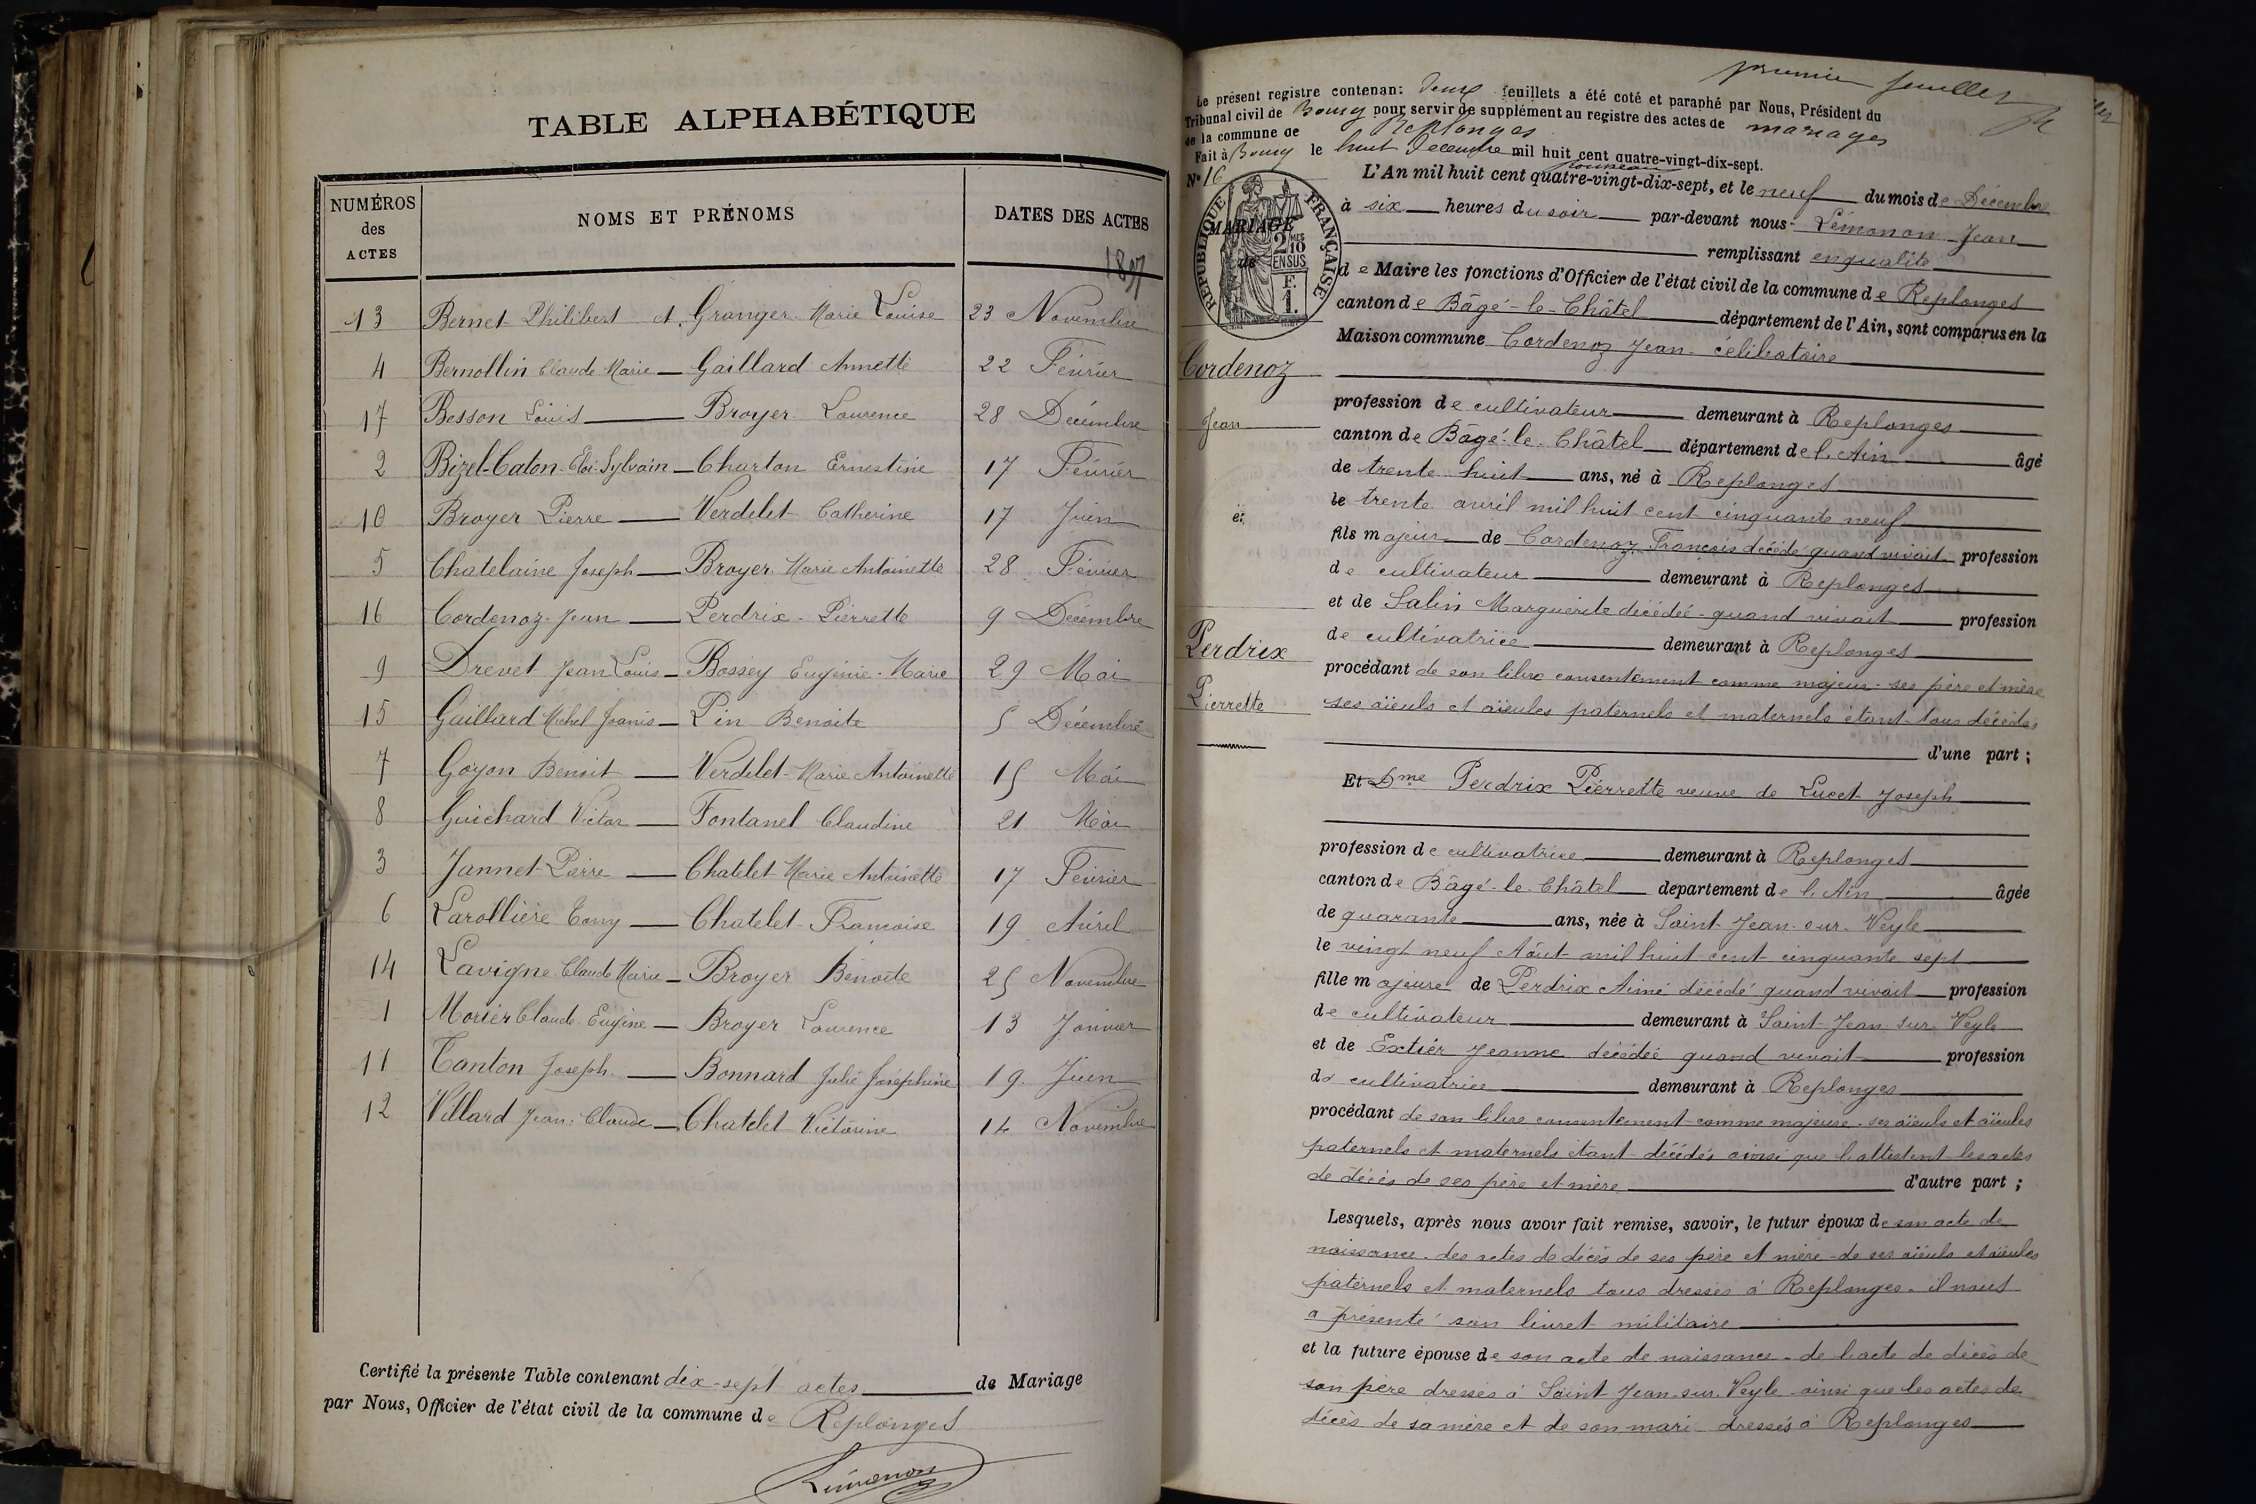 TABLE ALPHABÉTIQUE
NUMÉROS des ACTES
NOMS ET PRÉNOMS
DATES DES ACTES
1897
13 Bernet Philibert et Granger Marie Louise 23 Novembre
4 Bernollin Claude Marie — Gaillard Annette 22 Février
17 Besson Louis — Broyer Laurence 28 Décembre
2 Bizel-Caton Eloi Sylvain — Charton Ernestine 17 Février
10 Broyer Pierre — Verdelet Catherine 17 Juin
5 Chatelaine Joseph — Broyer Marie Antoinette 28 Février
16 Cordenoz Jean — Perdrix Pierrette 9 Décembre
9 Drevet Jean Louis — Bossey Eugénie Marie 29 Mai
15 Gaillard Michel Joanis — Pin Benoite 5 Décembre
7 Goyon Benoit — Verdelet Marie Antoinette 15 Mai
8 Guichard Victor — Fontanel Claudine 21 Mai
3 Jannet Pierre — Chatelet Marie Antoinette 17 Février
6 Larollière Tony — Chatelet Francoise 19 Avril
14 Lavigne Claude Marie — Broyer Benoite 25 Novembre
1 Morier Claude Eugène — Broyer Laurence 13 Janvier
11 Tanton Joseph — Bonnard Julie Joséphine 19 Juin
12 Villard Jean Claude — Chatelet Victorine 14 Novembre
Certifié la présente Table contenant dix-sept actes de Mariage
par Nous, Officier de l'état civil de la commune de Replonges
Lémonon
premier feuillet
Le présent registre contenan: deux feuillets a été coté et paraphé par Nous, Président du
Tribunal civil de Bourg pour servir de supplément au registre des actes de mariages
de la commune de Replonges
Fait à Bourg le huit Décembre mil huit cent quatre-vingt-dix-sept.
N° 16
MARIAGE
de
RÉPUBLIQUE FRANÇAISE
2 MES 10 EN SUS
F. 1.
Cordenoz
Jean
et
Perdrix
Pierrette
L'An mil huit cent quatre-vingt-dix-sept, et le neuf du mois de Décembre
à six heures du soir par-devant nous Lémonon Jean
remplissant en qualité
de Maire les fonctions d'Officier de l'état civil de la commune de Replonges
canton de Bâgé-le-Châtel département de l'Ain, sont comparus en la
Maison commune Cordenoz Jean célibataire
profession de cultivateur demeurant à Replonges
canton de Bâgé-le-Châtel département de l'Ain âgé
de trente huit ans, né à Replonges
le trente avril mil huit cent cinquante neuf
fils majeur de Cordenoz François décédé quand vivait profession
de cultivateur demeurant à Replonges
et de Salin Marguerite décédée quand vivait profession
de cultivatrice demeurant à Replonges
procédant de son libre consentement comme majeur ses père et mère
ses aïeuls et aïeules paternels et maternels étant tous décédés
d'une part ;
Et Dme Perdrix Pierrette veuve de Lucet Joseph
profession de cultivatrice demeurant à Replonges
canton de Bâgé-le-Châtel departement de l'Ain âgée
de quarante ans, née à Saint-Jean-sur-Veyle
le vingt neuf Août mil huit cent cinquante sept
fille majeure de Perdrix Aimé décédé quand vivait profession
de cultivateur demeurant à Saint Jean sur Veyle
et de Extier Jeanne décédée quand vivait profession
de cultivatrice demeurant à Replonges
procédant de son libre consentement comme majeure ses aïeuls et aïeules
paternels et maternels étant décédés ainsi que l'attestent les actes
de décès de ses père et mère d'autre part ;
Lesquels, après nous avoir fait remise, savoir, le futur époux de son acte de
naissance des actes de décès de ses père et mère de ses aïeuls et aïeules
paternels et maternels tous dressés à Replonges il nous
a présenté son livret militaire
et la future épouse de son acte de naissance de l'acte de décès de
son père dressés à Saint Jean sur Veyle ainsi que les actes de
décès de sa mère et de son mari dressés à Replonges